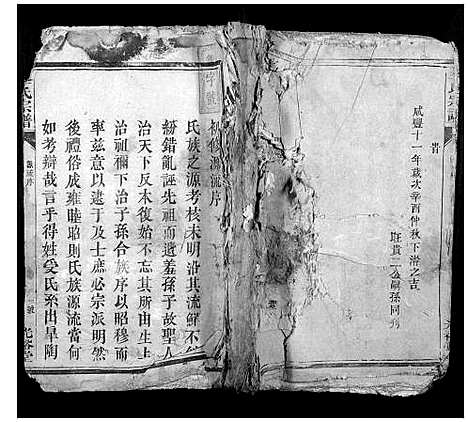 咸豐十一年歲次辛酉仲秋下浣之吉
旺貴二公嗣孫同
初修源流序
氏族之源考核未明沿其流鮮不
紛錯亂誣先祖而遺羞孫子故聖人
治天下反本復始不忘其所由生上
治祖禰下治子孫合族序以昭穆而
率兹意以逮于及士庶必宗派明然
後禮俗成雍睦昭則氏族源流當何
如考辯哉言乎得姓受氏系出皐陶
氏宗譜
源流序
光裕堂